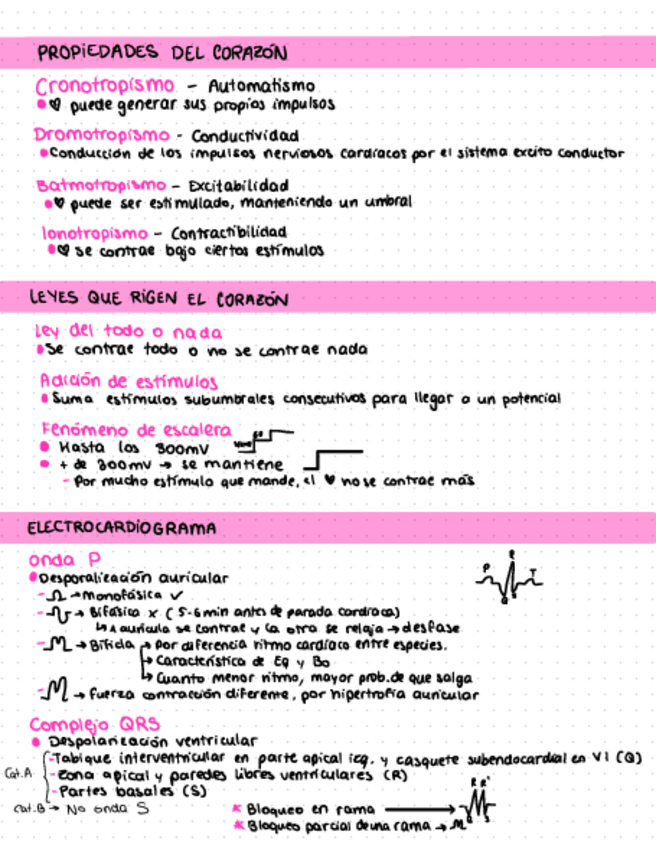 PROPIEDADES DEL CORAZÓN
Cronotropismo - Automatismo
puede generar sus propios impulsos
Dromotropismo - Conductividad
Conducción de los impulsos nerviosos cardíacos por el sistema excito conductor
Batmotropismo - Excitabilidad
puede ser estimulado, manteniendo un umbral
Ionotropismo - Contractibilidad
se contrae bajo ciertos estímulos
LEYES QUE RIGEN EL CORAZÓN
Ley del todo o nada
Se contrae todo o no se contrae nada
Adición de estímulos
Suma estímulos subumbrales consecutivos para llegar a un potencial
Fenómeno de escalera
Hasta los 300mV
+ de 300mv → se mantiene
- Por mucho estímulo que mande, el ♥ no se contrae más
ELECTROCARDIOGRAMA
onda P
P R T
Q S
Desporalización auricular
- → Monofásica ✓
- → Bifásica x (5-6min antes de parada cardiaca)
↳ 1 aurícula se contrae y la otra se relaja → desfase
- → Bífida → Por diferencia ritmo cardíaco entre especies.
↳ Característica de Eq y Bo
↳ Cuanto menor ritmo, mayor prob. de que salga
- → Fuerza contracción diferente, por hipertrofia auricular
Complejo QRS
Despolarización ventricular
Cat. A
- Tabique interventricular en parte apical izq. y casquete subendocardial en VI (Q)
- Zona apical y paredes libres ventriculares (R)
- Partes basales (S)
Cat. B → No onda S
* Bloqueo en rama → R R'
* Bloqueo parcial de una rama →